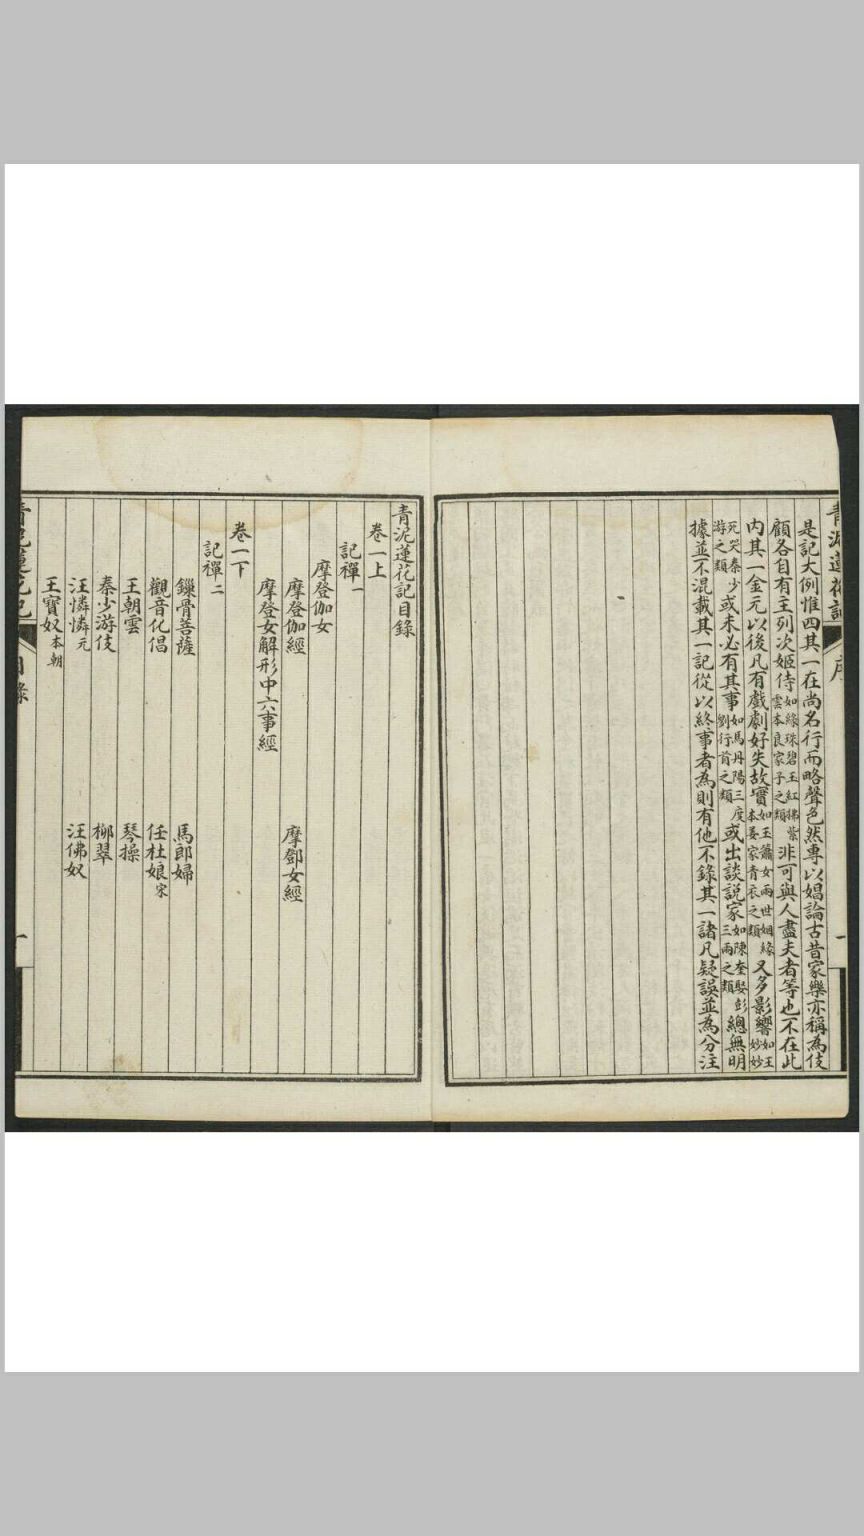 青泥蓮花記
序
是記大例惟四其一在尚名行而略聲色然專以娼論古昔家樂亦稱為伎
顧各自有主列次姬侍如綠珠碧玉紅拂紫雲本良家子之類非可與人盡夫者等也不在此
內其一金元以後凡有戲劇好失故實如王簫女兩世姻緣本姜家青衣之類又多影響如王妙妙
死哭秦少游之類或未必有其事如馬丹陽三度劉行首之類或出談說家如陳奎娶彭三兩之類總無明
據並不混載其一記從以終事者為則有他不錄其一諸凡疑誤並為分注
一
青泥蓮花記目錄
卷一上
記禪一
摩登伽女
摩登伽經 摩鄧女經
摩登女解形中六事經
卷一下
記禪二
鏁骨菩薩 馬郎婦
觀音化倡 任杜娘宋
王朝雲 琴操
秦少游伎 柳翠
汪憐憐元 汪佛奴
王寶奴本朝
青泥蓮花記
目錄
一